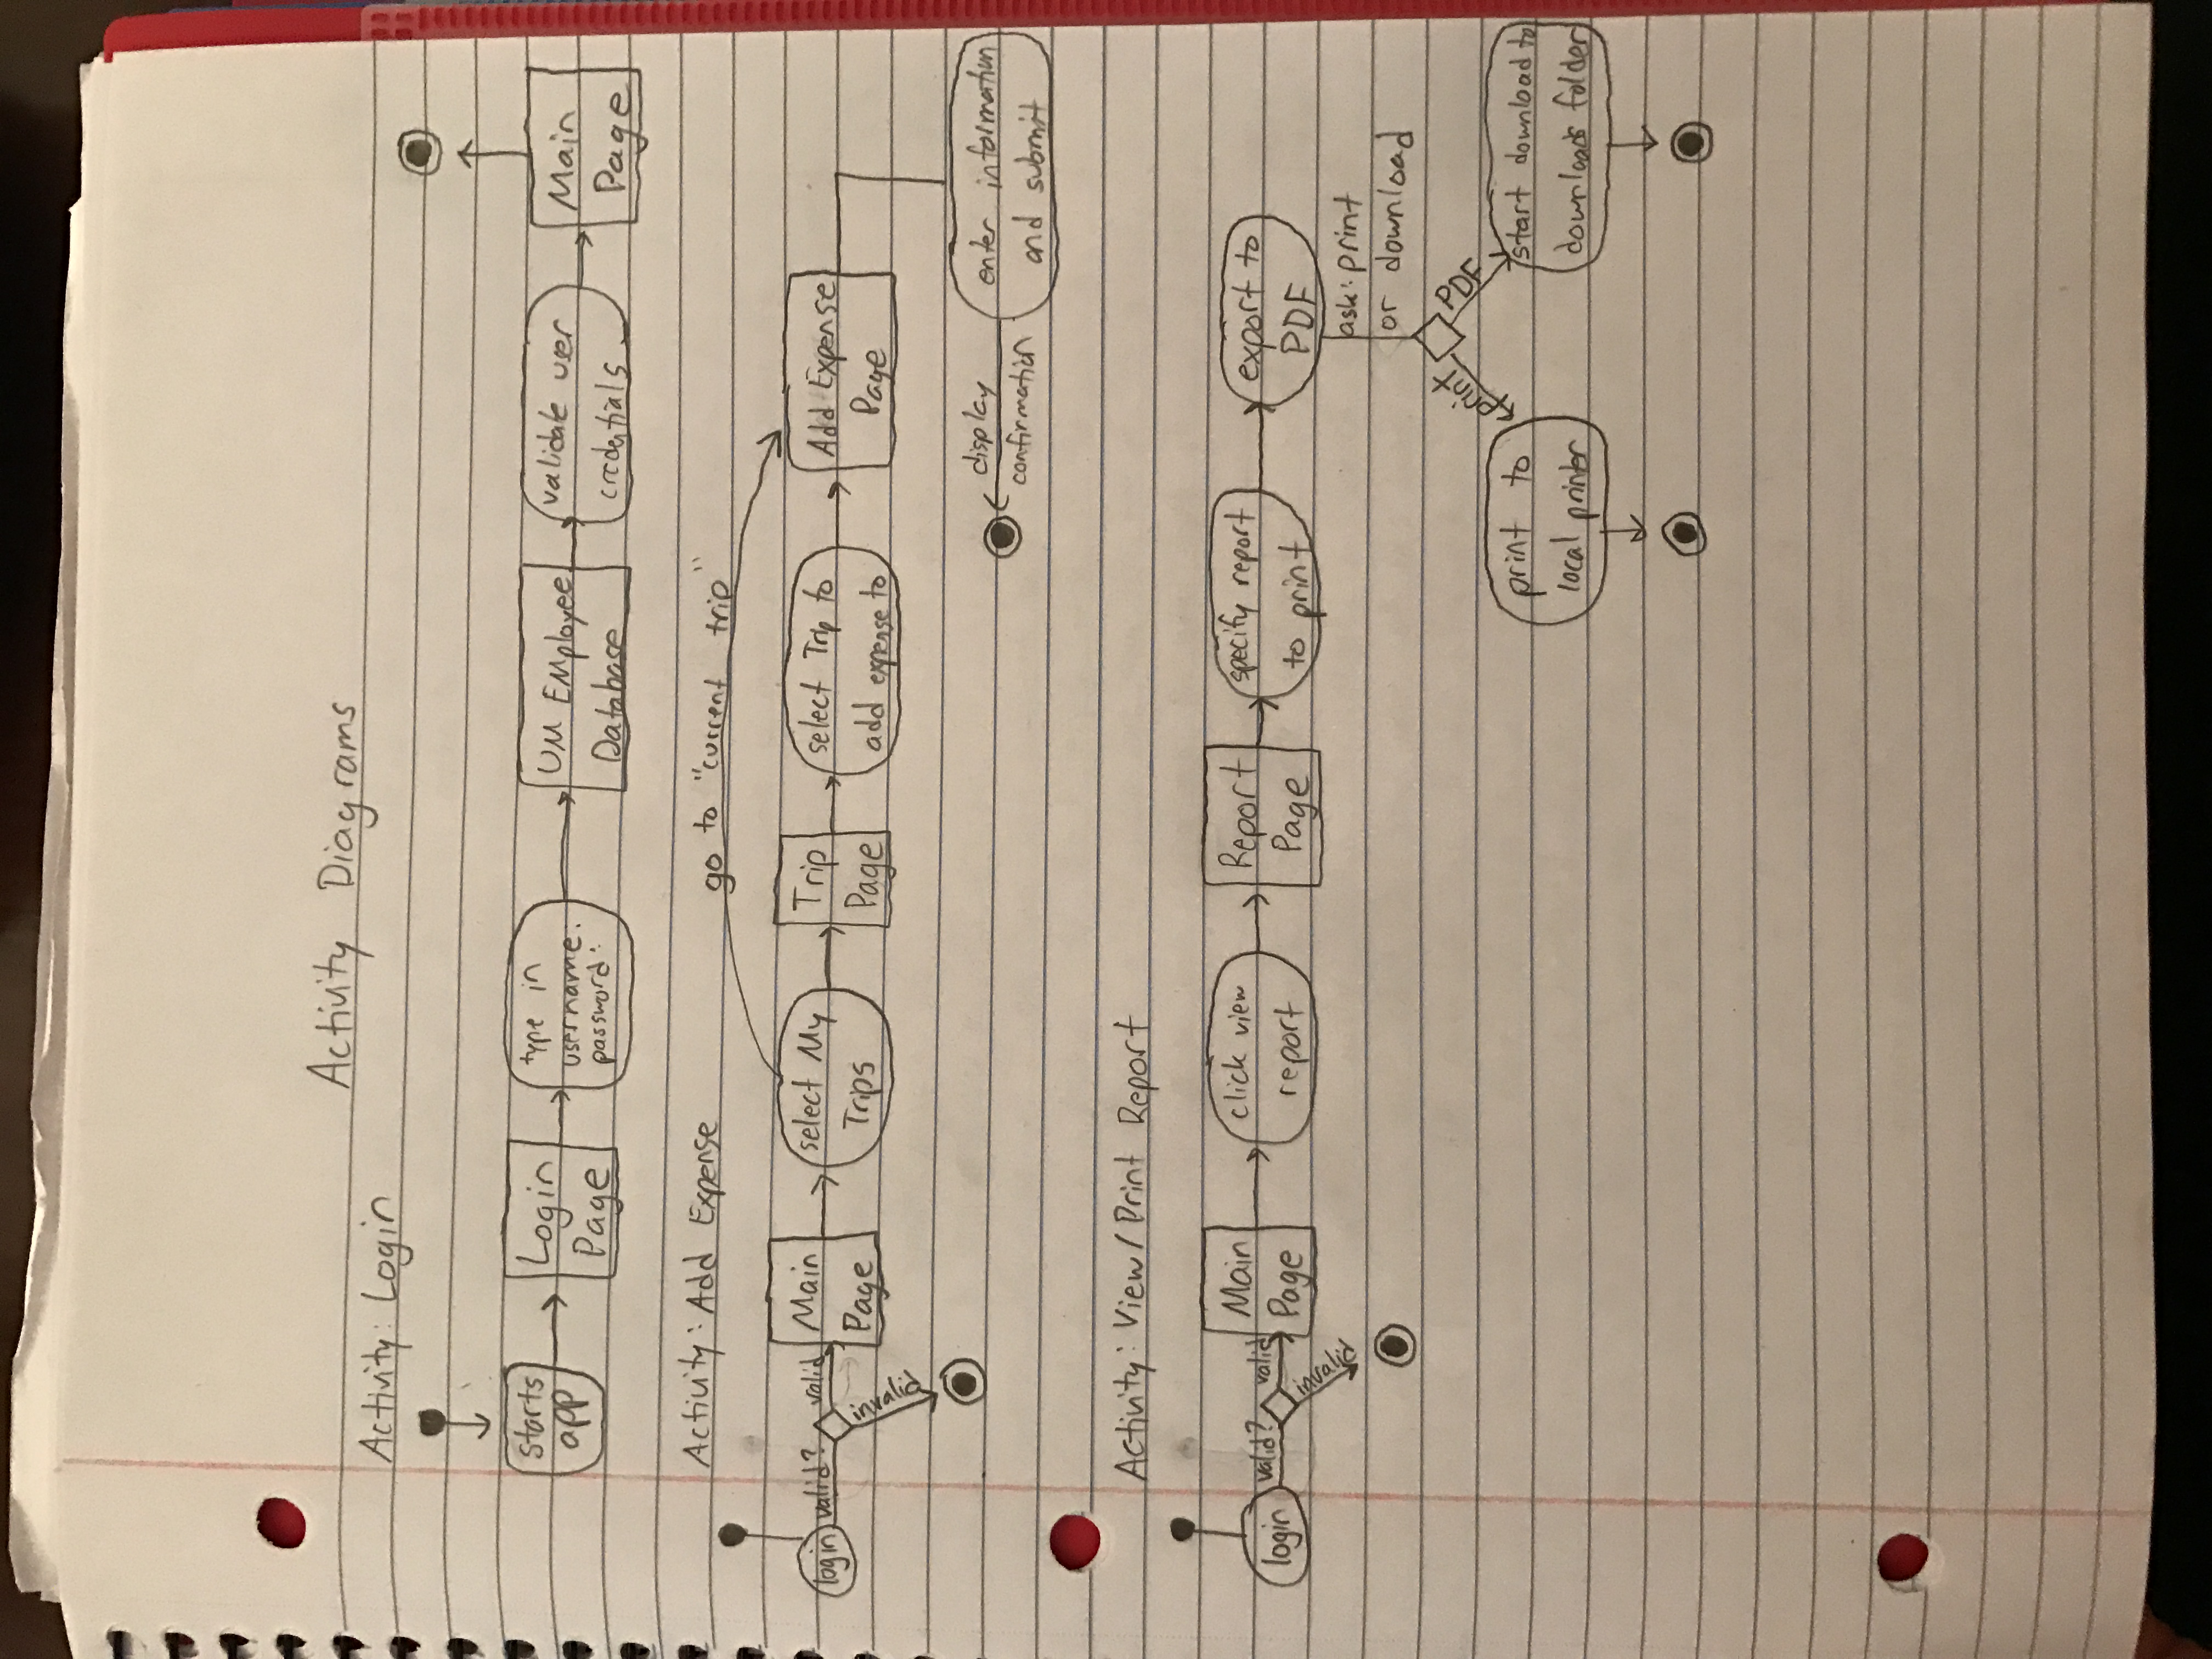 Activity Diagrams
Activity: Login
starts
app
Login
Page
type in
username:
password:
UM EMployee
Database
validate user
credentials
Main
Page
Activity: Add Expense
go to "current trip"
login
valid?
valid
invalid
Main
Page
select My
Trips
Trip
Page
select Trip to
add expense to
Add Expense
Page
enter information
and submit
display
confirmation
Activity: View/Print Report
login
valid?
valid
invalid
Main
Page
click view
report
Report
Page
specify report
to print
export to
PDF
ask: print
or download
print
PDF
print to
local printer
start download to
downloads folder